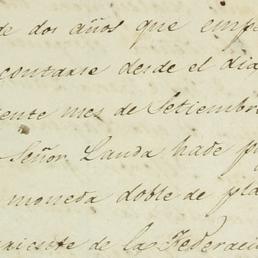 de dos años que empe
contarse desde el dia
iente mes de Setiembre
Señor Landa hade p
moneda doble de pla
de la Federaci